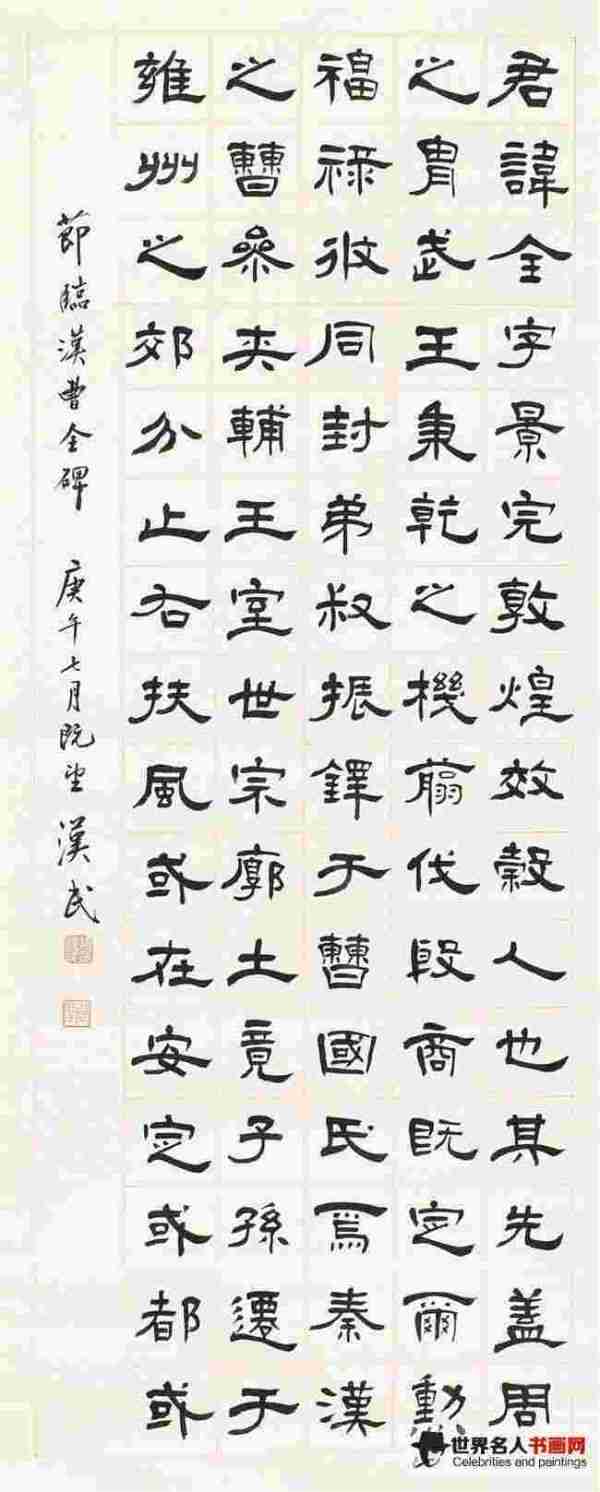 君諱全字景完敦煌效穀人也其先盖周
之胄武王秉乾之機翦伐殷商既定爾勳
福禄攸同封弟叔振鐸于曹國氏焉秦漢
之曹參夾輔王室世宗廓土竟子孫遷于
雍州之郊分止右扶風或在安定或都或
節臨漢曹全碑 庚午七月既望 漢民
世界名人书画网
Celebrities and paintings